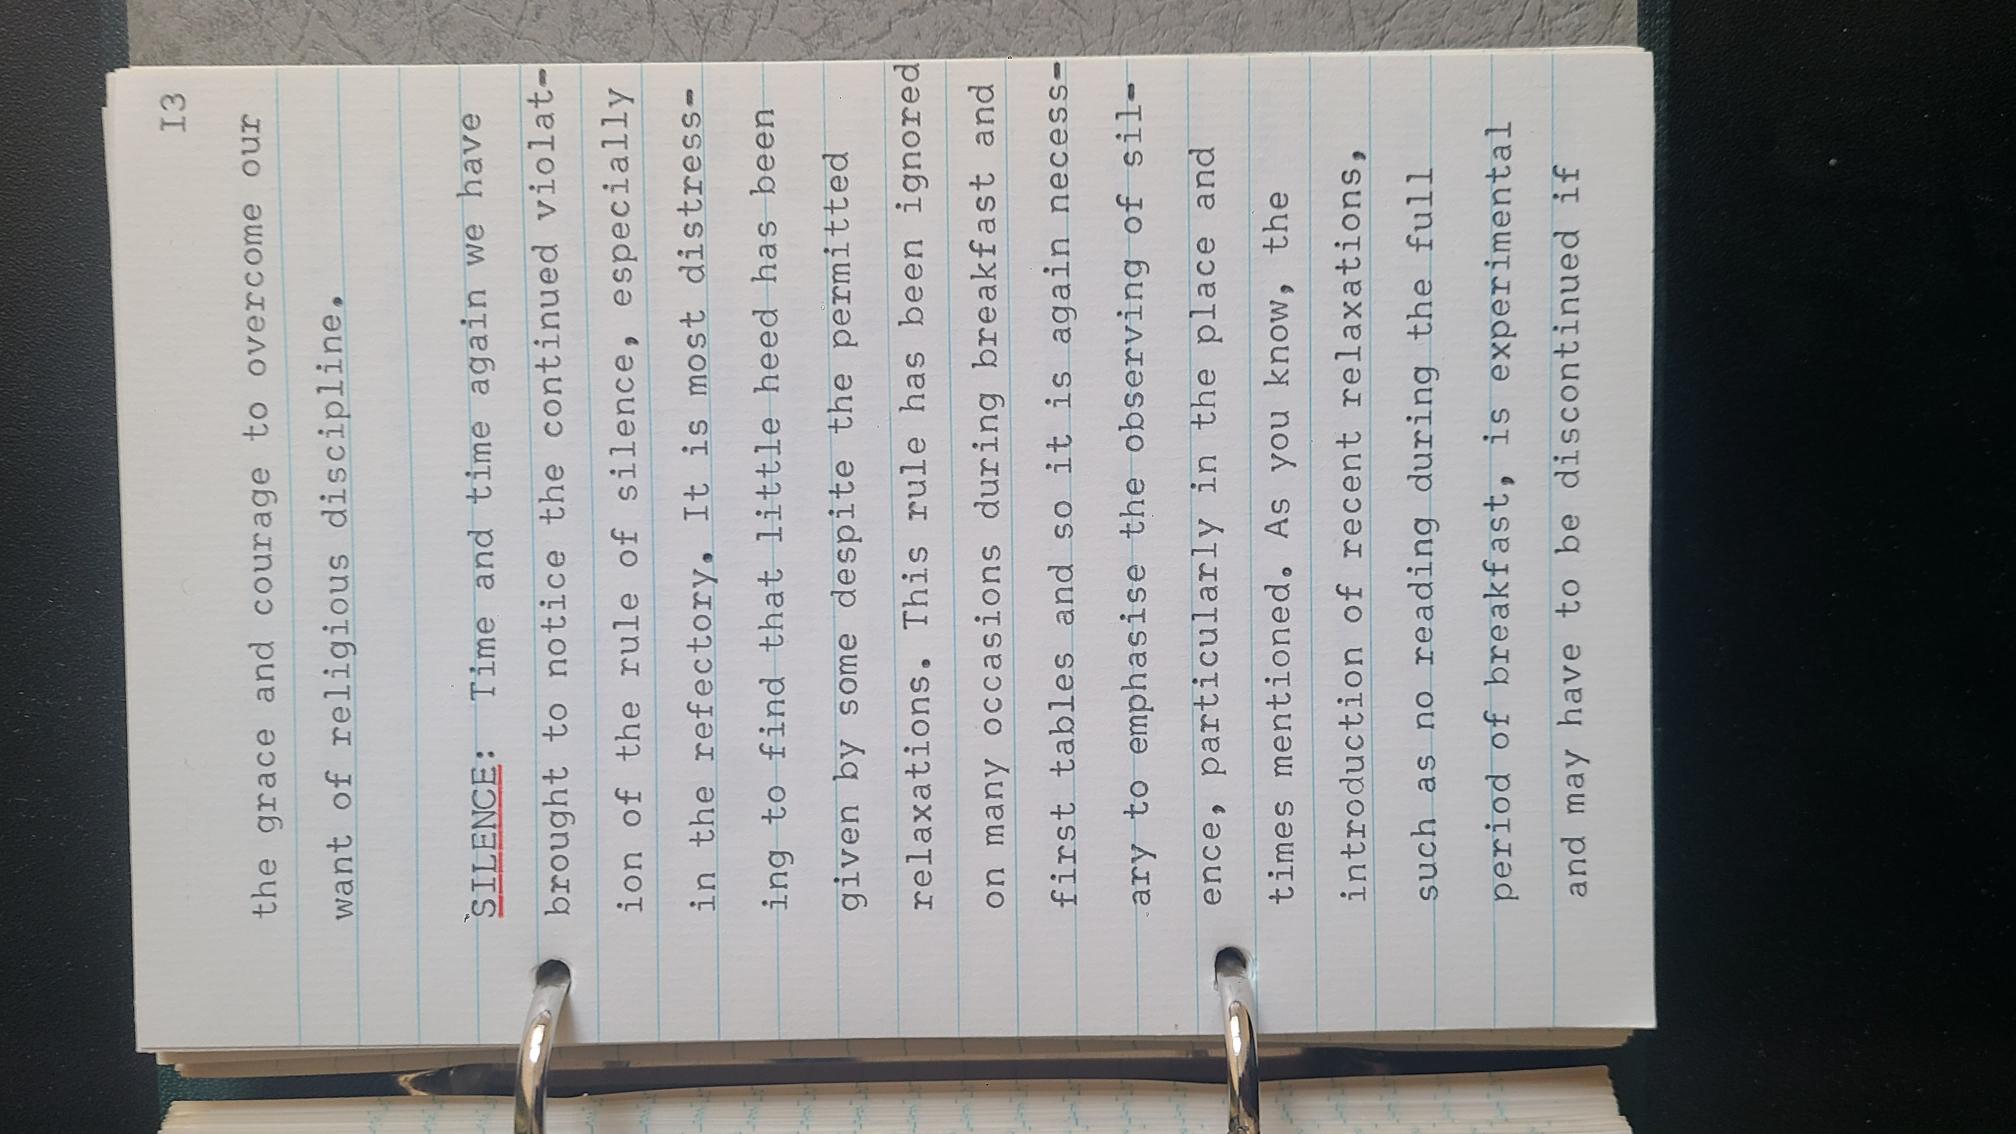 I3
the grace and courage to overcome our
want of religious discipline.
SILENCE: Time and time again we have
brought to notice the continued violat-
ion of the rule of silence, especially
in the refectory. It is most distress-
ing to find that little heed has been
given by some despite the permitted
relaxations. This rule has been ignored
on many occasions during breakfast and
first tables and so it is again necess-
ary to emphasise the observing of sil-
ence, particularly in the place and
times mentioned. As you know, the
introduction of recent relaxations,
such as no reading during the full
period of breakfast, is experimental
and may have to be discontinued if